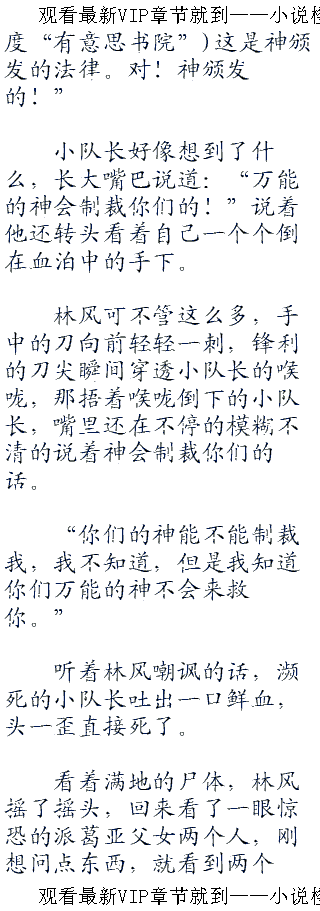 观看最新VIP章节就到——小说检
度“有意思书院”)这是神颁
发的法律。对！神颁发
的！”
小队长好像想到了什
么，长大嘴巴说道：“万能
的神会制裁你们的！”说着
他还转头看着自己一个个倒
在血泊中的手下。
林风可不管这么多，手
中的刀向前轻轻一刺，锋利
的刀尖瞬间穿透小队长的喉
咙，那捂着喉咙倒下的小队
长，嘴里还在不停的模糊不
清的说着神会制裁你们的
话。
“你们的神能不能制裁
我，我不知道，但是我知道
你们万能的神不会来救
你。”
听着林风嘲讽的话，濒
死的小队长吐出一口鲜血，
头一歪直接死了。
看着满地的尸体，林风
摇了摇头，回来看了一眼惊
恐的派葛亚父女两个人，刚
想问点东西，就看到两个
观看最新VIP章节就到——小说检